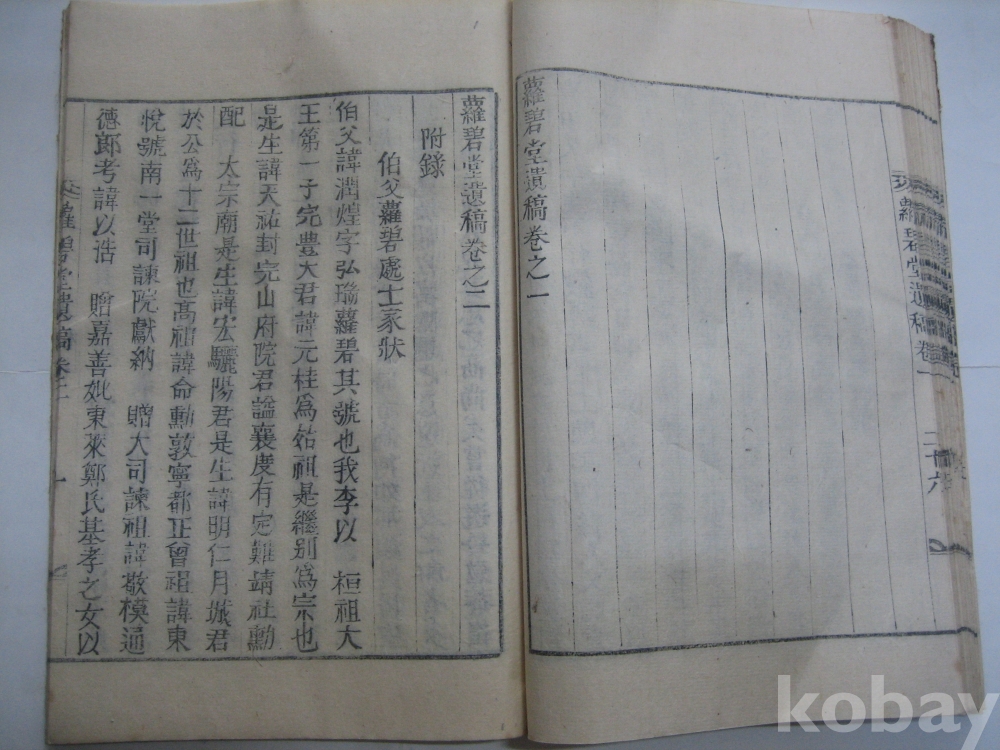 蘿碧堂遺稿卷之一
蘿碧堂遺稿卷一
二十六
蘿碧堂遺稿卷之二
附錄
伯父蘿碧處士家狀
伯父諱潤煌字弘瑜蘿碧其號也我李以 桓祖大
王第一子完豊大君諱元桂爲始祖是繼别爲宗也
是生諱天祐封完山府院君謚襄度有定難靖社勳
配 太宗廟是生諱宏驪陽君是生諱明仁月城君
於公爲十二世祖也高祖諱命勳敦寧都正曾祖諱東
悅號南一堂司諫院獻納 贈大司諫祖諱敬模通
德郎考諱以浩 贈嘉善妣東萊鄭氏基孝之女以
蘿碧堂遺稿卷二
一
kobay